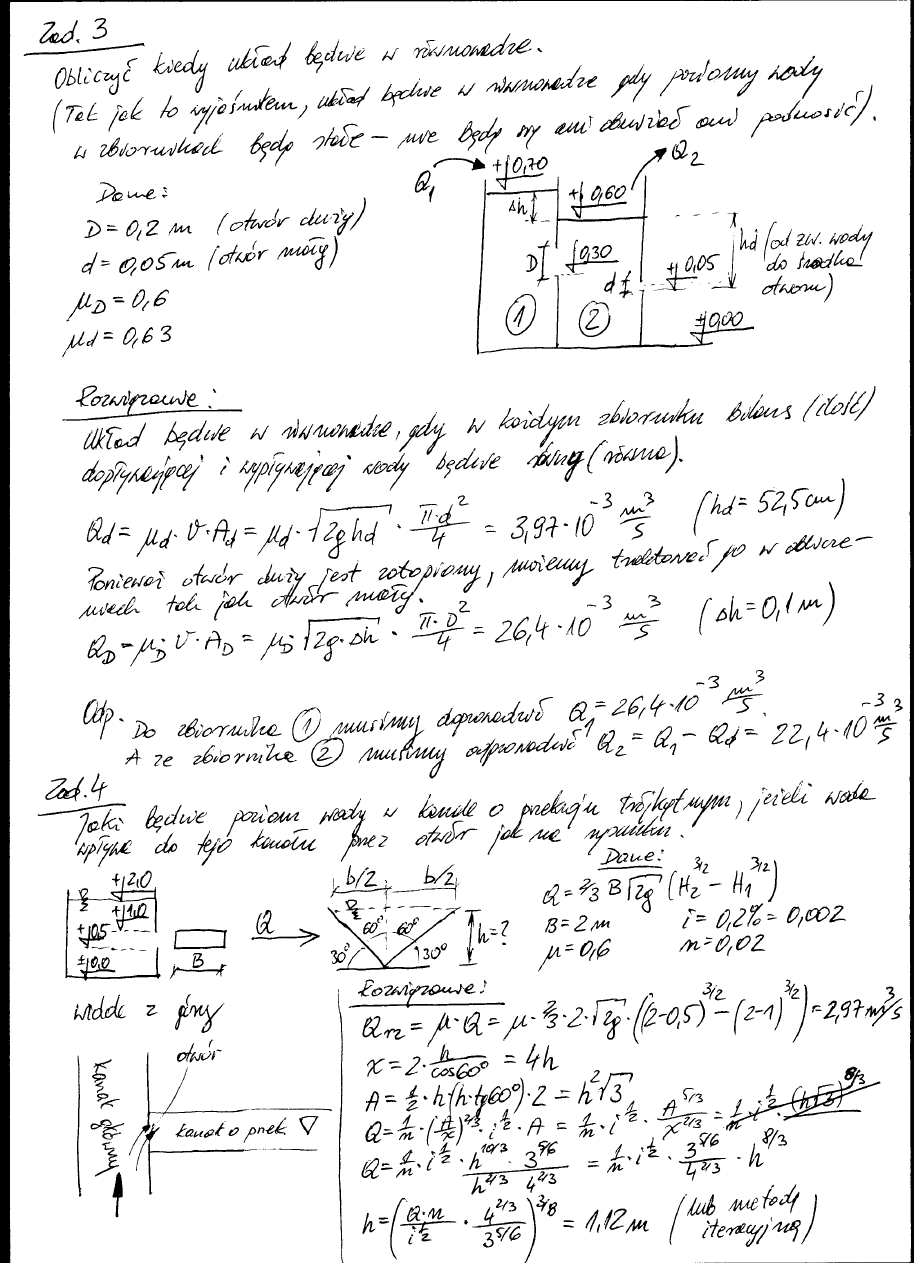 Zad. 3
Obliczyć kiedy układ będzie w równowadze.
(Tak jak to wyjaśniłem, układ będzie w równowadze gdy poziomy wody
w zbiornikach będą stałe – nie będą się ani obniżać ani podnosić).
Dane:
D = 0,2 m (otwór duży)
d = 0,05 m (otwór mały)
μD = 0,6
μd = 0,63
Q1
+0,70
Q2
Δh
+0,60
D
0,30
d
+0,05
hd (od zw. wody
do środka
otworu)
1
2
±0,00
Rozwiązanie:
Układ będzie w równowadze, gdy w każdym zbiorniku bilans (ilość)
dopływającej i wypływającej wody będzie (równa).
Qd = μd · v · Ad = μd · √2ghd · π·d²/4 = 3,97·10⁻³ m³/s (hd = 52,5cm)
Ponieważ otwór duży jest zatopiony, możemy traktować go w oblicze-
niach tak jak otwór mały.
QD = μD · v · AD = μD · √2g·Δh · π·D²/4 = 26,4·10⁻³ m³/s (Δh = 0,1m)
Odp. Do zbiornika 1 musimy doprowadzić Q1 = 26,4·10⁻³ m³/s.
A ze zbiornika 2 musimy odprowadzić Q2 = Q1 – Qd = 22,4·10⁻³ m³/s
Zad. 4
Jaki będzie poziom wody w kanale o przekroju trójkątnym, jeżeli woda
wpływa do tego kanału przez otwór jak na rysunku.
+2,0
+1,0
+0,5
±0,0
B
Q
b/2
b/2
60°
60°
30°
30°
h=?
Dane:
Q = 2/3 B√2g (H2^3/2 – H1^3/2)
B = 2 m
i = 0,2% = 0,002
μ = 0,6
n = 0,02
widok z góry
otwór
Kanał główny
kanał o przek. ▽
Rozwiązanie:
Qrz = μ·Q = μ · 2/3 · 2 · √2g · ((2-0,5)^3/2 – (2-1)^3/2) = 2,97 m³/s
x = 2 · h/cos60° = 4h
A = 1/2 · h·(h·tg60°) · 2 = h²√3
Q = 1/n · (A/x)^2/3 · i^1/2 · A = 1/n · i^1/2 · A^5/3/x^2/3 = 1/n · i^1/2 · (h√3)^8/3
Q = 1/n · i^1/2 · h^10/3/h^2/3 · 3^5/6/4^2/3 = 1/n · i^1/2 · 3^5/6/4^2/3 · h^8/3
h = (Q·n/i^1/2 · 4^2/3/3^5/6)^3/8 = 1,12 m (lub metodą
iteracyjną)